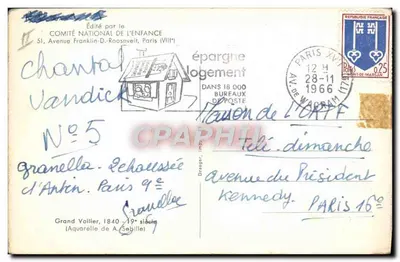 Édité par le
COMITÉ NATIONAL DE L'ENFANCE
51, Avenue Franklin-D.-Roosevelt, Paris (VIIIe)
II
Chantal
Vandick
No 5
Granella. 2 chaussée
d'Antin. Paris 9e
Granella
Grand Voilier, 1840 - 19e siècle
(Aquarelle de A. Sebille)
épargne
logement
DANS 18 000
BUREAUX
DE POSTE
PARIS XVII
12 H
28-11
1966
AV. DE WAGRAM (17e)
RÉPUBLIQUE FRANÇAISE
0,25
MONT-DE-MARSAN
Maison de l'ORTF
Télé. dimanche
avenue du Président
Kennedy. PARIS 16e